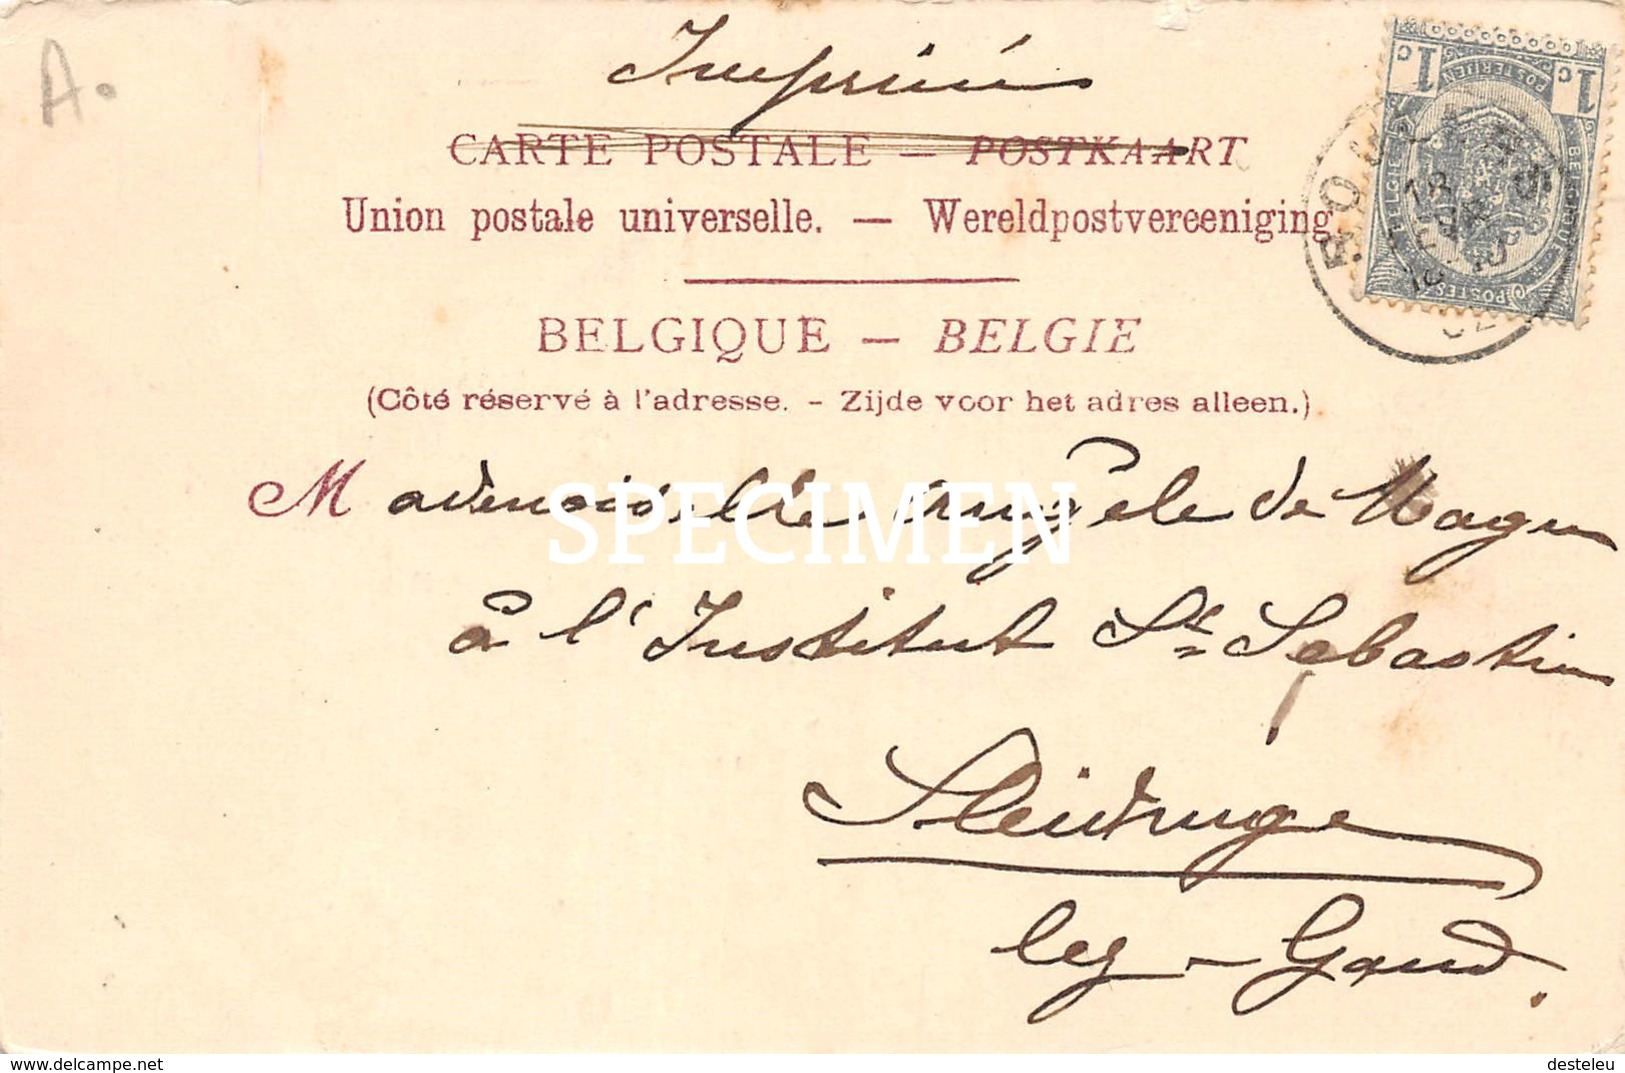 A.
Imprimé
CARTE POSTALE — POSTKAART
Union postale universelle. — Wereldpostvereeniging
BELGIQUE — BELGIE
(Côté réservé à l'adresse. - Zijde voor het adres alleen.)
Mademoiselle Angèle de
à l'Institut St Sébastien
Sleidinge
lez - Gand.
SPECIMEN
1c 1c
POSTERIJEN
BELGIE BELGIQUE
POSTES
18
02
Website: delcampe.net
desteleu